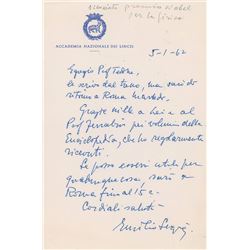 scienziato premio Nobel
per la fisica
ACCADEMIA NAZIONALE DEI LINCEI
5-1-62
Egregio Prof Tedone,
le scrivo dal treno, ma sarò di
ritorno a Roma martedì.
Grazie mille a lei e al
Prof Ferrabino per volumi della
Enciclopedia, che ho regolarmente
ricevuti.
Se posso esservi utile per
qualunque cosa sarò a
Roma fino al 15 c.
Cordiali saluti
Emilio Segrè